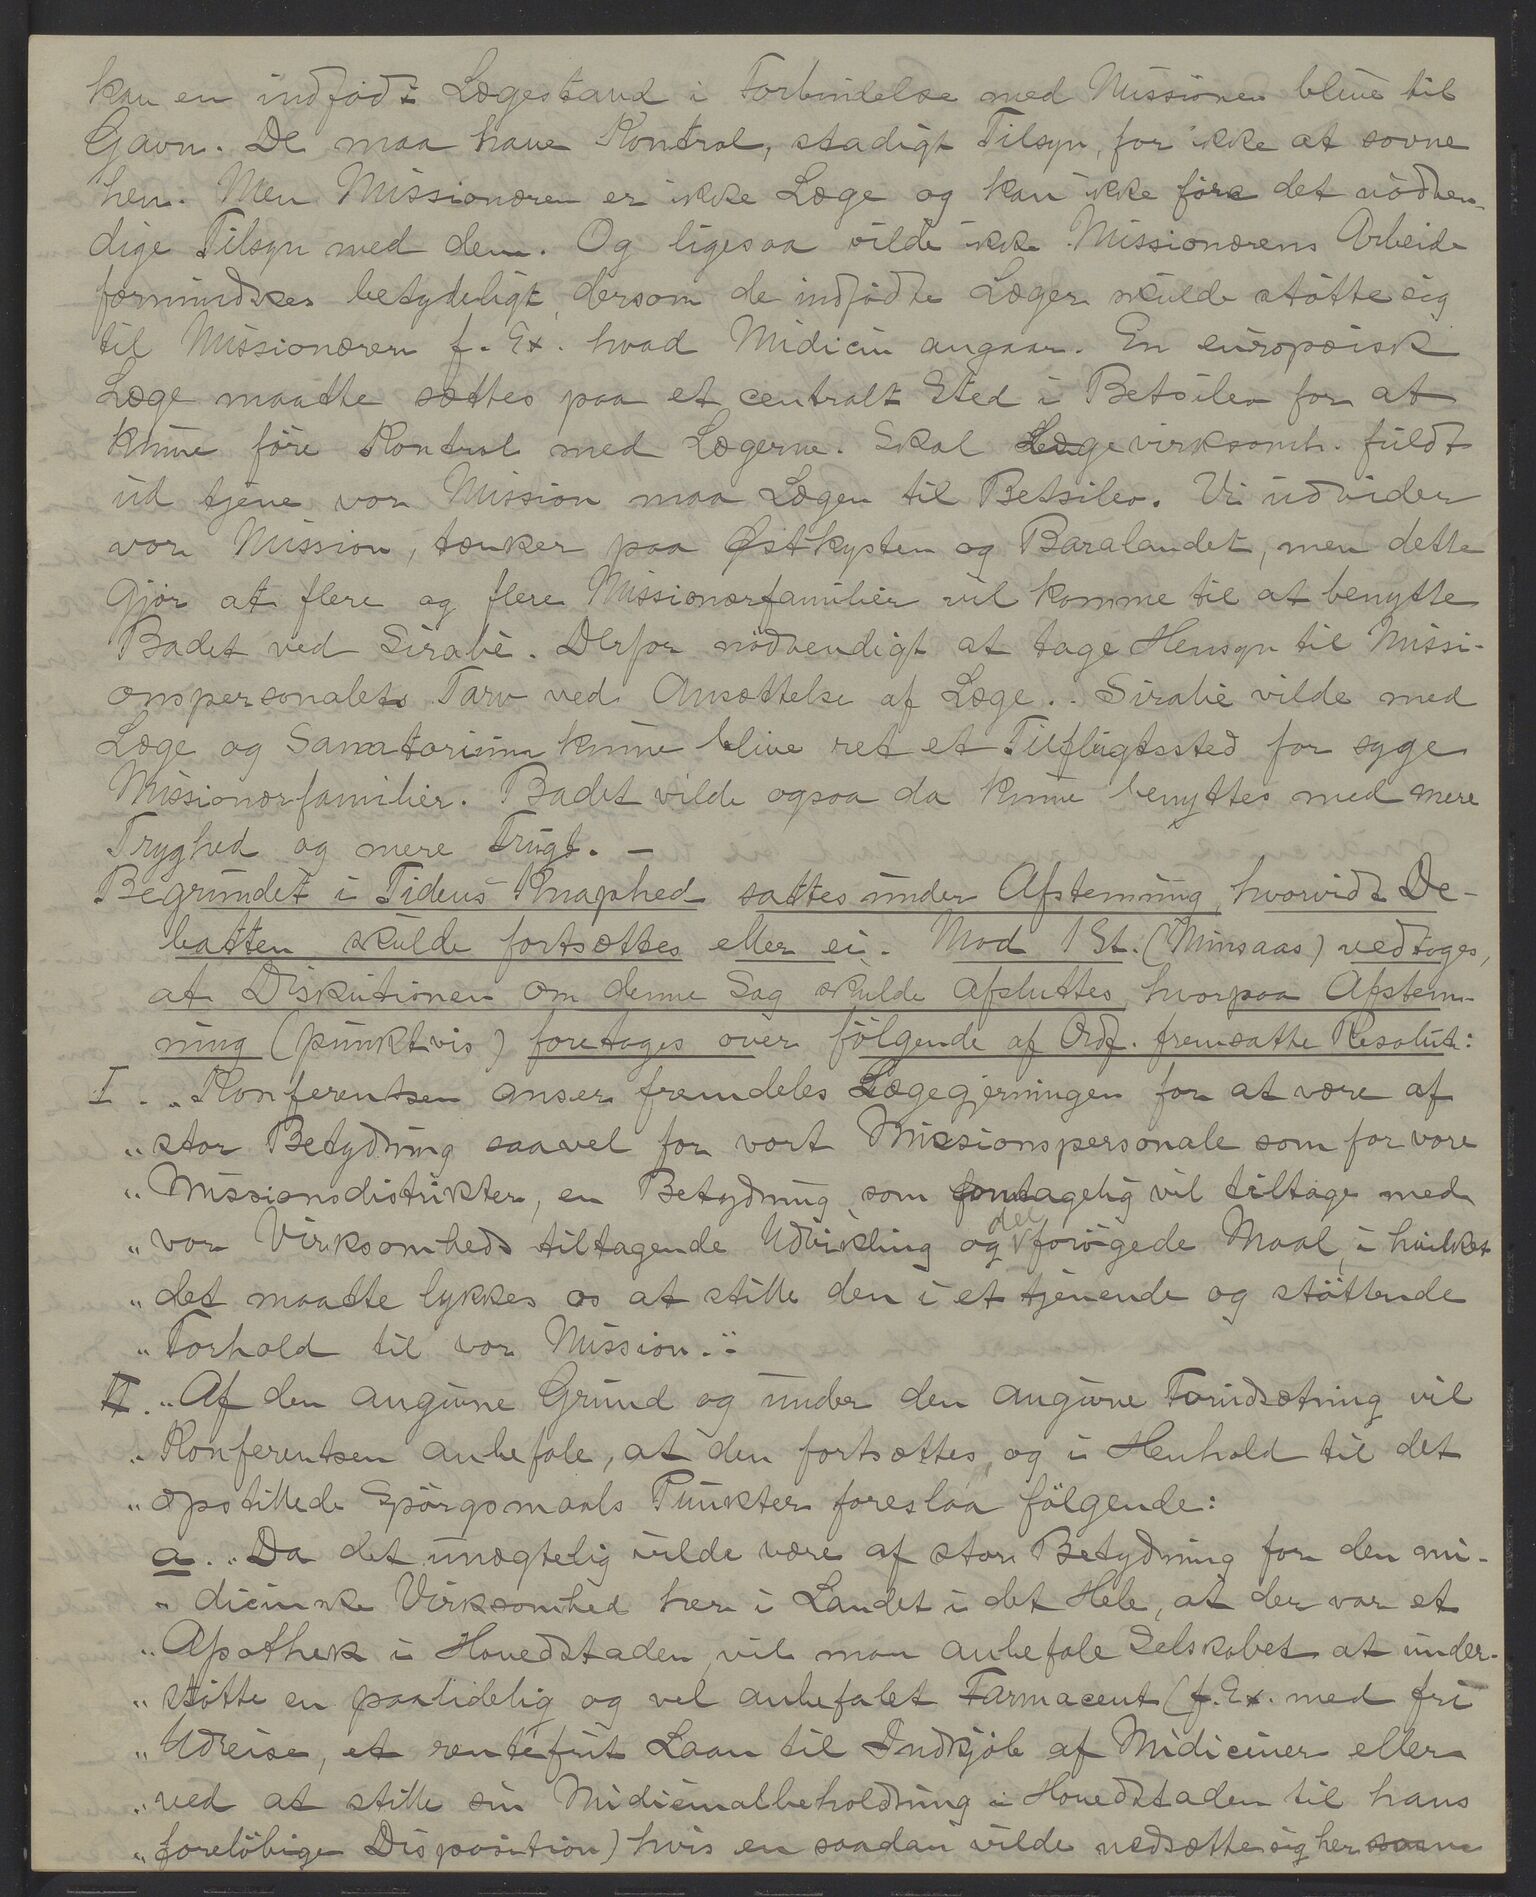 kan en indfødt Lægestand i Forbindelse med Missionen blive til
Gavn. De maa have Kontrol, stadigt Tilsyn, for ikke at sovne
hen. Men Missionæren er ikke Læge og kan ikke føre det nødven-
dige Tilsyn med dem. Og ligesaa vilde ikke Missionærens Arbeide
formindskes betydeligt, dersom de indfødte Læger skulde støtte sig
til Missionæren f. Ex. hvad Midicin angaar. En europæisk
Læge maatte sættes paa et centralt Sted i Betsileo for at
kunne føre Kontrol med Lægerne. Skal Lægevirksomh. fuldt
ud tjene vor Mission maa Lægen til Betsileo. Vi udvider
vor Mission, tænker paa Østkysten og Baralandet, men dette
Gjør at flere og flere Missionærfamilier vil komme til at benytte
Badet ved Sirabè. Derfor nødvendigt at tage Hensyn til Missi-
onspersonalets Tarv ved Ansættelse af Læge. Sirabè vilde med
Læge og Sanatorium kunne blive ret et Tilflugtssted for syge
Missionærfamilier. Badet vilde ogsaa da kunne benyttes med mere
Tryghed og mere Frugt. —
Begrundet i Tidens Knaphed sattes under Afstemning, hvorvidt De-
batten skulde fortsættes eller ei. Mod 1 St. (Minsaas) vedtoges,
at Diskutionen om denne Sag skulde afsluttes, hvorpaa Afstem-
ning (punktvis) foretoges over følgende af Ordf. fremsatte Resolut:
I. „Konferentsen anser fremdeles Lægegjerningen for at være af
„ stor Betydning saavel for vort Missionspersonale som for vore
„ Missionsdistrikter, en Betydning, som vil tiltage med
„ vor Virksomheds tiltagende Udvikling og det forøgede Maal, i hvilket
„ det maatte lykkes os at stille den i et tjenende og støttende
„ Forhold til vor Mission."
II. „Af den angivne Grund og under den angivne Forudsætning vil
„ Konferentsen anbefale, at den fortsættes, og i Henhold til det
„ opstillede Spørgsmaals Punkter foreslaa følgende:
a. „Da det unægtelig vilde være af stor Betydning for den mi-
„ dicinske Virksomhed her i Landet i det Hele, at der var et
„ Apothek i Hovedstaden, vil man anbefale Selskabet at under-
„ støtte en paalidelig og vel anbefalet Farmaceut (f. Ex. med fri
„ Udreise, et rentefrit Laan til Indkjøb af Midiciner eller
„ ved at stille sin Midicinalbeholdning i Hovedstaden til hans
„ foreløbige Disposition) hvis en saadan vilde nedsætte sig her